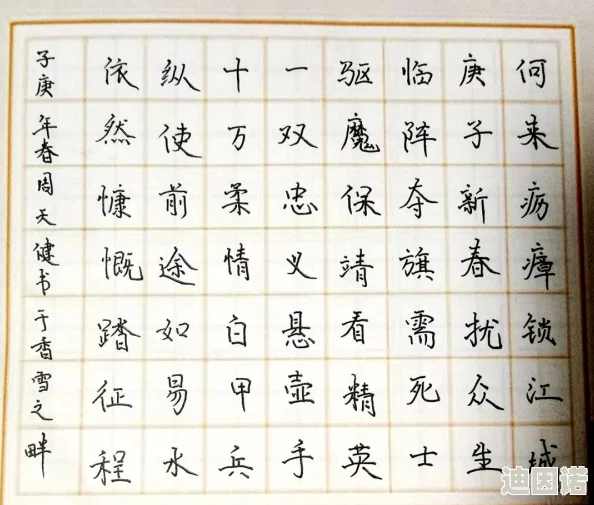 何来疠瘴锁江城
庚子新春扰众生
临阵夺旗需死士
驱魔保靖看精英
一双忠义悬壶手
十万柔情白甲兵
纵使前途如易水
依然慷慨踏征程
子庚年春周天健书于香雪之畔
迪因诺